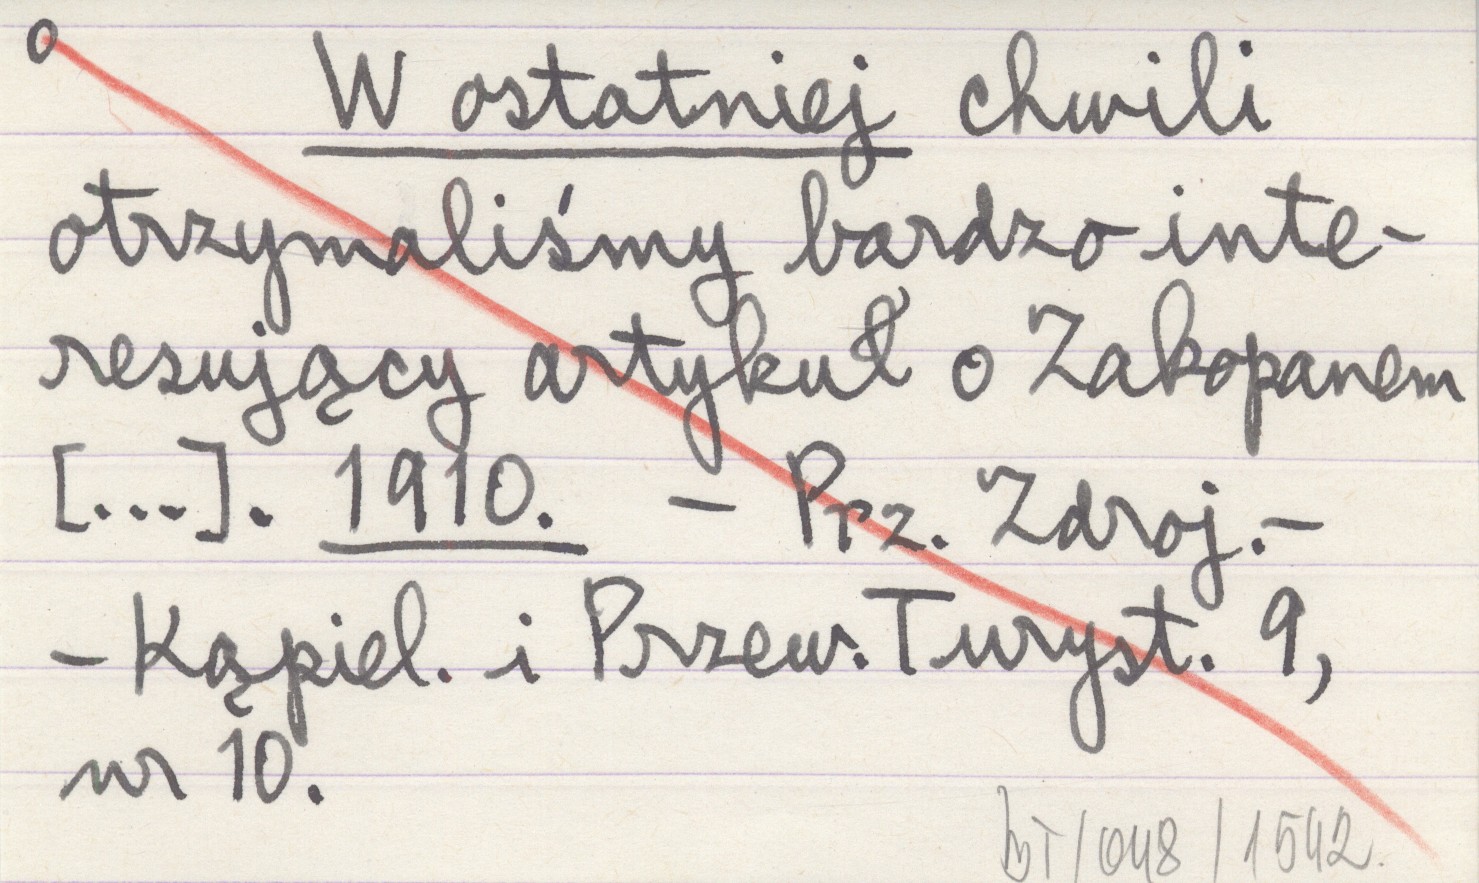 o
W ostatniej chwili
otrzymaliśmy bardzo inte-
resujący artykuł o Zakopanem
[...]. 1910. - Prz. Zdroj.-
- Kąpiel. i Przew. Turyst. 9,
nr 10.
BT/048/1542.